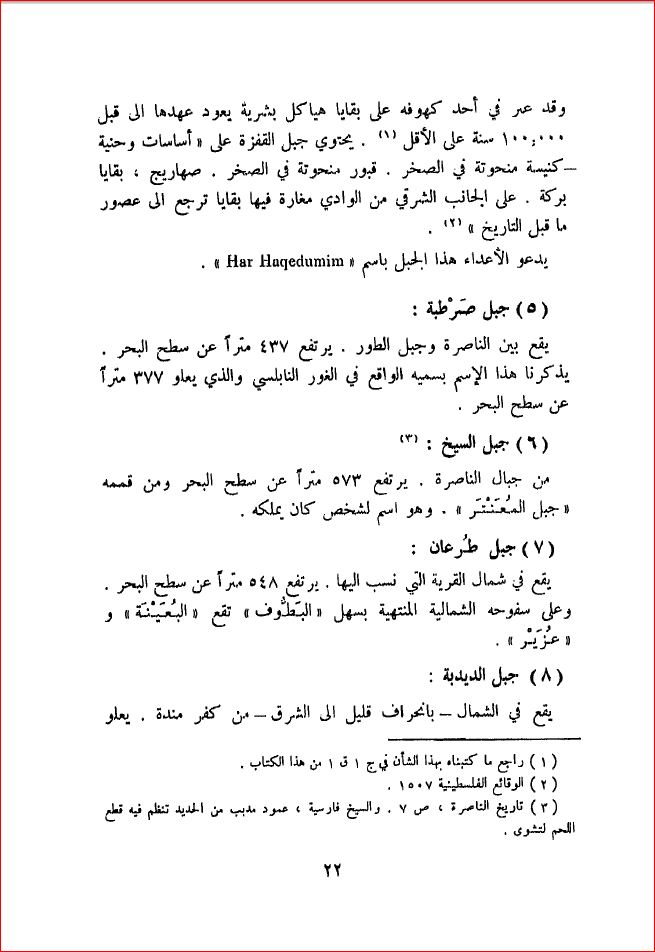 وقد عثر في أحد كهوفه على بقايا هياكل بشرية يعود عهدها الى قبل
١٠٠,٠٠٠ سنة على الأقل (١) . يحتوي جبل القفزة على « أساسات وحنية
– كنيسة منحوتة في الصخر . قبور منحوتة في الصخر . صهاريج ، بقايا
بركة . على الجانب الشرقي من الوادي مغارة فيها بقايا ترجع الى عصور
ما قبل التاريخ » (٢) .
يدعو الأعداء هذا الجبل باسم « Har Haqedumim » .
(٥) جبل صَرْطبة :
يقع بين الناصرة وجبل الطور . يرتفع ٤٣٧ متراً عن سطح البحر .
يذكرنا هذا الإسم بسميه الواقع في الغور النابلسي والذي يعلو ٣٧٧ متراً
عن سطح البحر .
(٦) جبل السيخ : (٣)
من جبال الناصرة . يرتفع ٥٧٣ متراً عن سطح البحر ومن قممه
« جبل المُعَنْتَر » . وهو اسم لشخص كان يملكه .
(٧) جبل طُرعان :
يقع في شمال القرية التي نسب اليها . يرتفع ٥٤٨ متراً عن سطح البحر .
وعلى سفوحه الشمالية المنتهية بسهل « البَطُّوف » تقع « البُعَيْنَة » و
« عُزَيْر » .
(٨) جبل الديدبة :
يقع في الشمال – بانحراف قليل الى الشرق – من كفر مندة . يعلو
(١) راجع ما كتبناه بهذا الشأن في ج ١ ق ١ من هذا الكتاب .
(٢) الوقائع الفلسطينية ١٥٠٧ .
(٣) تاريخ الناصرة ، ص ٧ . والسيخ فارسية ، عمود مدبب من الحديد تنظم فيه قطع
اللحم لتشوى .
٢٢